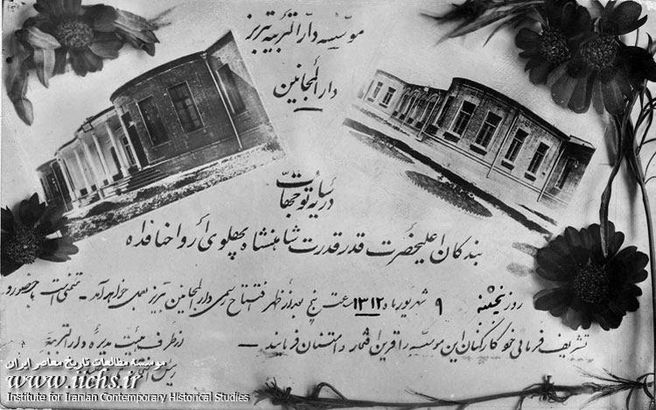 موسسه دار التربیه تبریز
دار المجانین
در سایه توجهات
بندگان اعلیحضرت قدر قدرت شاهنشاه پهلوی ارواحنا فداه
روز پنجشنبه ۹ شهریور ماه ۱۳۱۲ ساعت پنج بعد از ظهر افتتاح رسمی دار المجانین تبریز بعمل خواهد آمد - متمنی است با حضور و
تشریف فرمائی خود کارکنان این موسسه را قرین افتخار و امتنان فرمایند -
از طرف هیئت مدیره دار التربیه
رئیس
موسسه مطالعات تاریخ معاصر ایران
www.iichs.ir
Institute for Iranian Contemporary Historical Studies